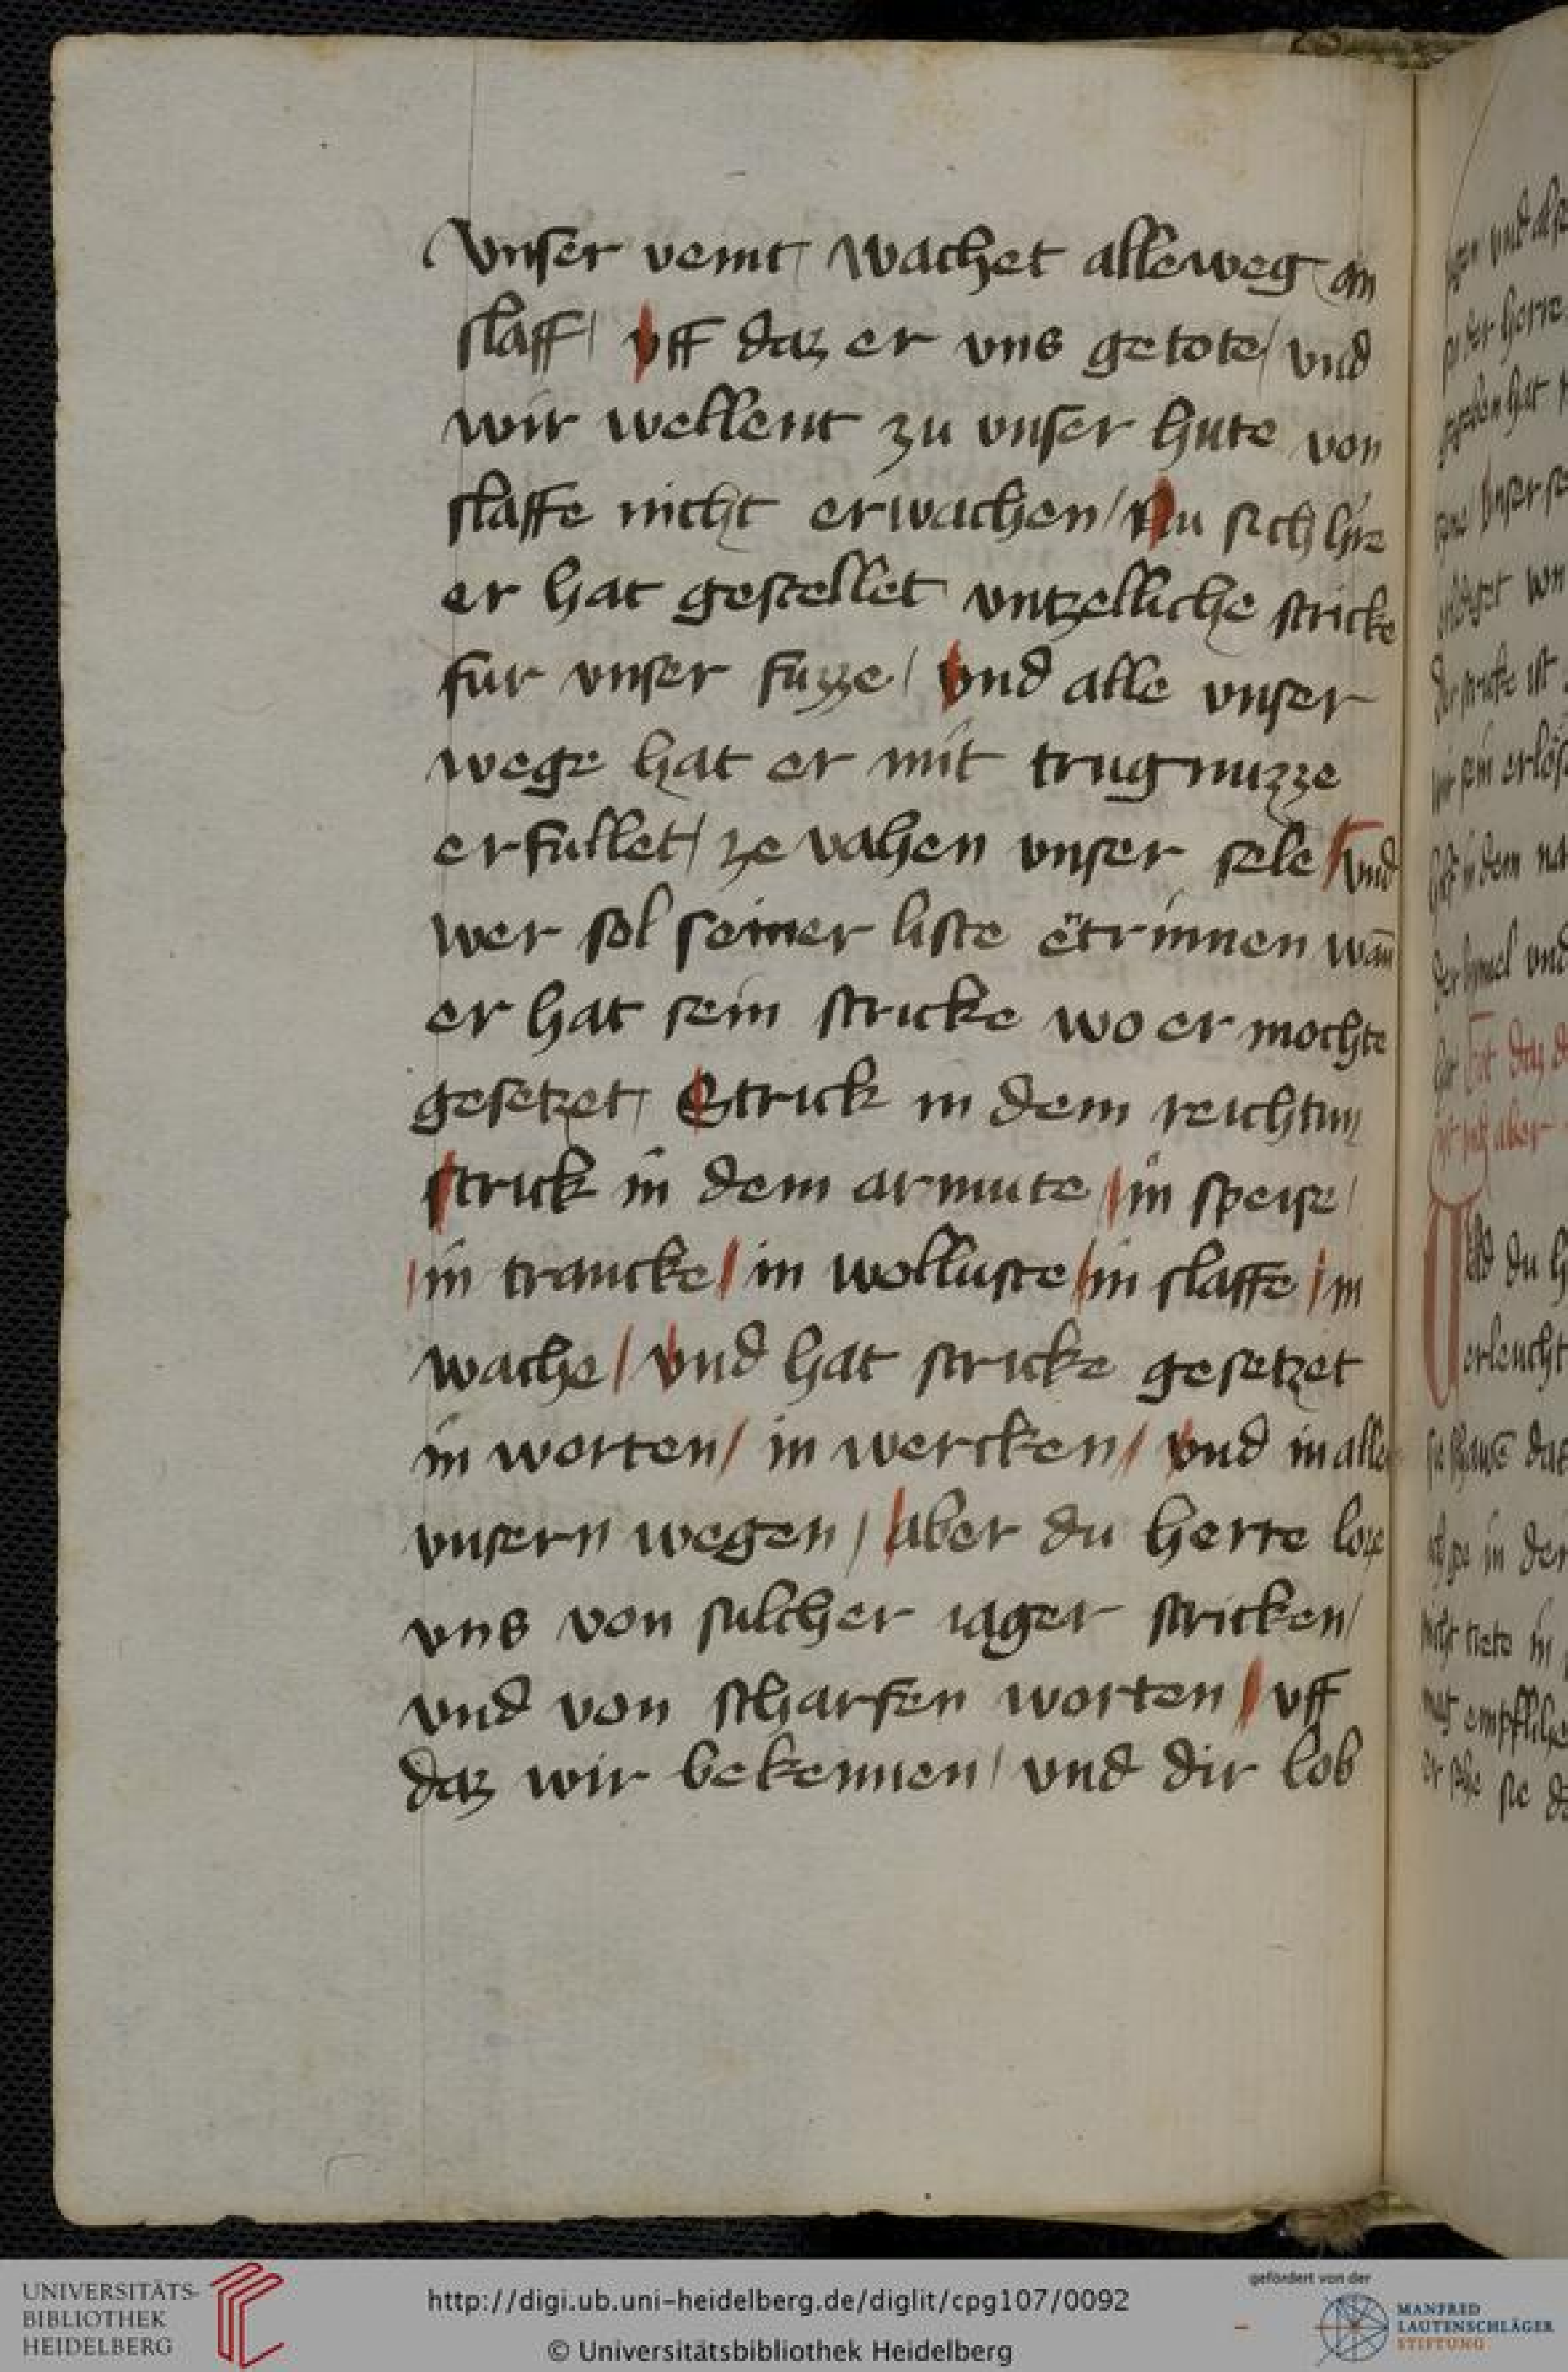 vnser veint wachet alleweg an
slaff / vff daz er vns getote / vnd
wir wellent zu vnser hute von
slaffe nicht erwachen / Nu sich hre
er hat gestellet vntzelliche stricke
fur vnser fuzze / vnd alle vnser
wege hat er mit trugnuzze
erfullet / ze vahen vnser sele / vnd
wer sol seiner liste ētrinnen wañ
er hat sein stricke wo er mochte
gesetzet Strick in dem reichtum
strick in dem armute / in speise /
/ in trancke / in wolluste / in slaffe / in
wache / vnd hat stricke gesetzet
in worten / in wercken / vnd in alle
vnsern wegen / aber du herre loze
vns von sulcher iager stricken /
vnd von scharfen worten / vff
daz wir bekennen / vnd dir lob
UNIVERSITÄTS-
BIBLIOTHEK
HEIDELBERG
http://digi.ub.uni-heidelberg.de/diglit/cpg107/0092
© Universitätsbibliothek Heidelberg
gefördert von der
MANFRED
LAUTENSCHLÄGER
STIFTUNG